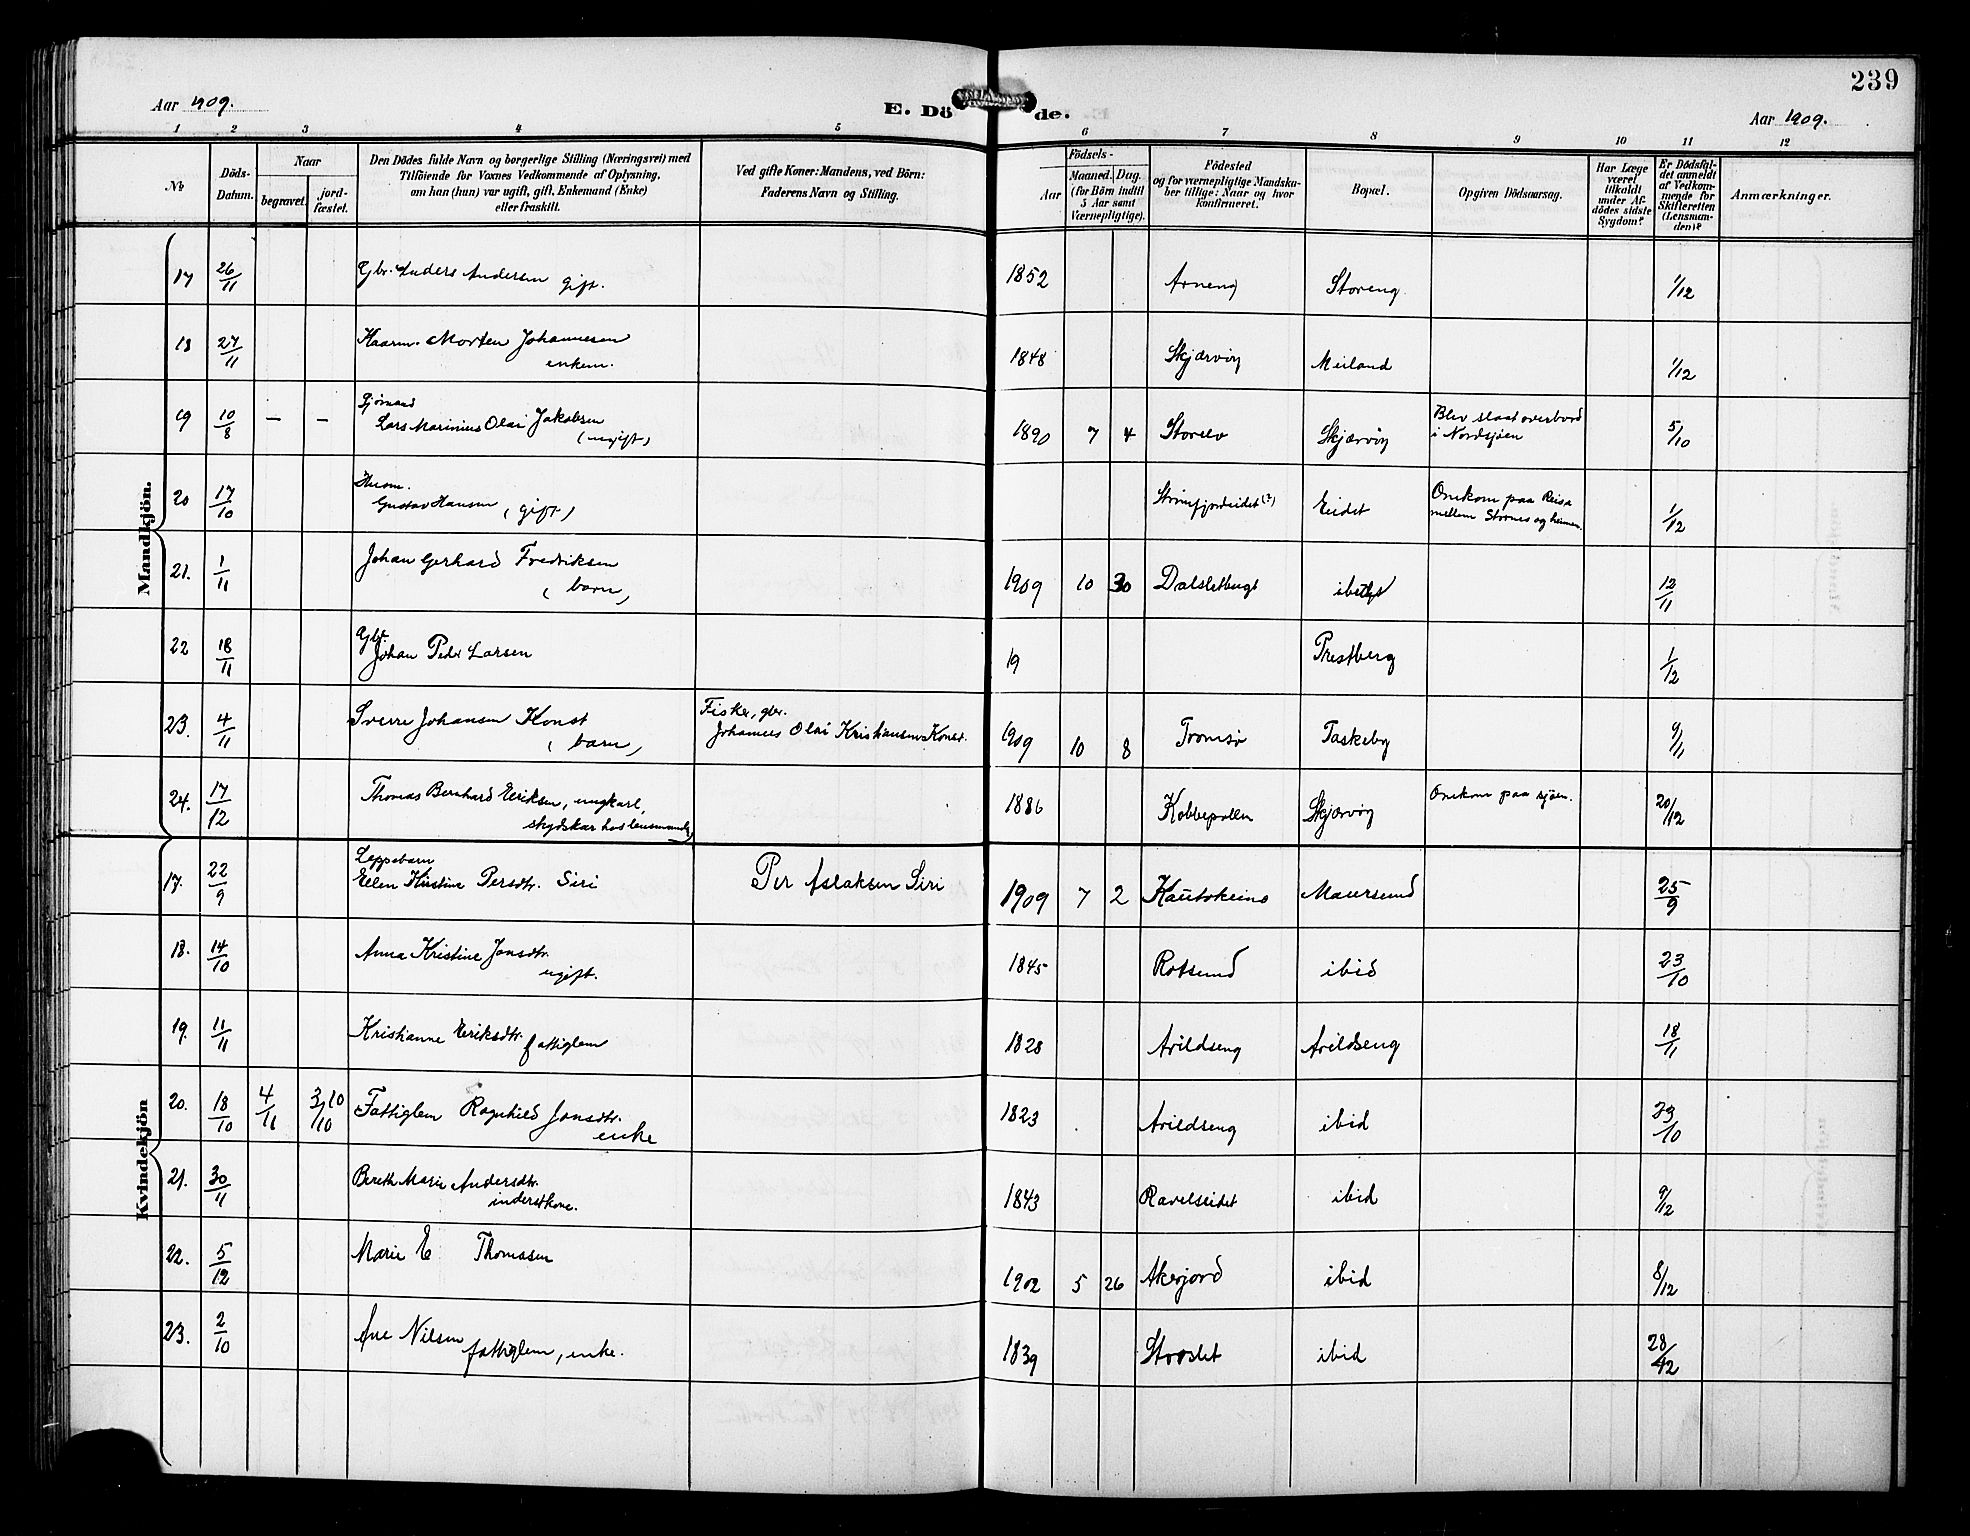 239
Aar 1909.
E. Dö de.
Aar 1909.
1 2 3 4 5 6 7 8 9 10 11 12
No
Döds-
Datum.
Naar
begravet.
jord-
fæstet.
Den Dödes fulde Navn og borgerlige Stilling (Næringsvei) med
Tilföiende for Voxnes Vedkommende af Oplysning,
om han (hun) var ugift, gift, Enkemand (Enke)
eller fraskilt.
Ved gifte Koner: Mandens, ved Börn:
Faderens Navn og Stilling.
Födsels-
Aar
Maaned. Dag.
(for Börn indtil
5 Aar samt
Værnepligtige).
Födested
og for værnepligtige Mandska-
ber tillige: Naar og hvor
konfirmeret.
Bopæl.
Opgiven Dödsaarsag.
Har Læge
været
tilkaldt
under Af-
dödes sidste
Sygdom?
Er Dödsfal-
det anmeldt
af Vedkom-
mende for
Skifteretten
(Lensman-
den)?
Anmærkninger.
Mandkjön.
17 26/11 Gbr. Anders Andersen gift. 1852 Arneng Storeng 1/12
18 27/11 Kaarm. Morten Johannesen
enkem. 1848 Skjærvöy Meiland 1/12
19 10/8 — — Sjömand
Lars Marinius Olai Jakobsen
(ugift) 1890 7 4 Storelv Skjærvöy Blev slaat overbord
i Nordsjøen 5/10
20 17/10 Husm.
Gustav Hansen (gift) Straumfjordeidet (?) Eidet Omkom paa Reisa
mellem Stornes og heimen. 1/12
21. 1/11 Johan Gerhard Fredriksen
(barn) 1909 10 30 Dalsletbugt 12/11
22 18/11 Gbr.
Johan Peder Larsen 19 Prestberg 1/12
23. 4/11 Sverre Johansen Konst
(barn) Fisker, gbr.
Johannes Olai Kristiansen Konst. 1909 10 8 Tromsø Taskeby 9/11
24. 17/12 Thomas Bernhard Eriksen, ungkarl,
skydskar hos lensmanden 1886 Kobbepollen Skjærvöy Omkom paa sjøen. 20/12
Kvindekjön
17. 22/9 Lappebarn
Ellen Kirstine Persdtr. Siri Per Aslaksen Siri 1909 7 2 Kautokeino Maursund 25/9
18. 14/10 Anna Kristine Jonsdtr.
ugift. 1845 Rotsund ibid 23/10
19. 11/11 Kristianne Eriksdtr. fattiglem 1828 Arildseng Arildseng 18/11
20. 18/10 4/11 Fattiglem Ragnhild Jonsdtr.
enke 1823 Arildseng ibid 23/10
21. 30/11 Bereth Marie Andersdtr.
inderstkone. 1843 Ravelseidet ibid 9/12
22. 5/12 Marie E Thomassen 1902 5 26 Akerjord ibid 8/12
23. 2/10 Ane Nilsen
fattiglem, enke. 1839 Storslet ibid 28/12